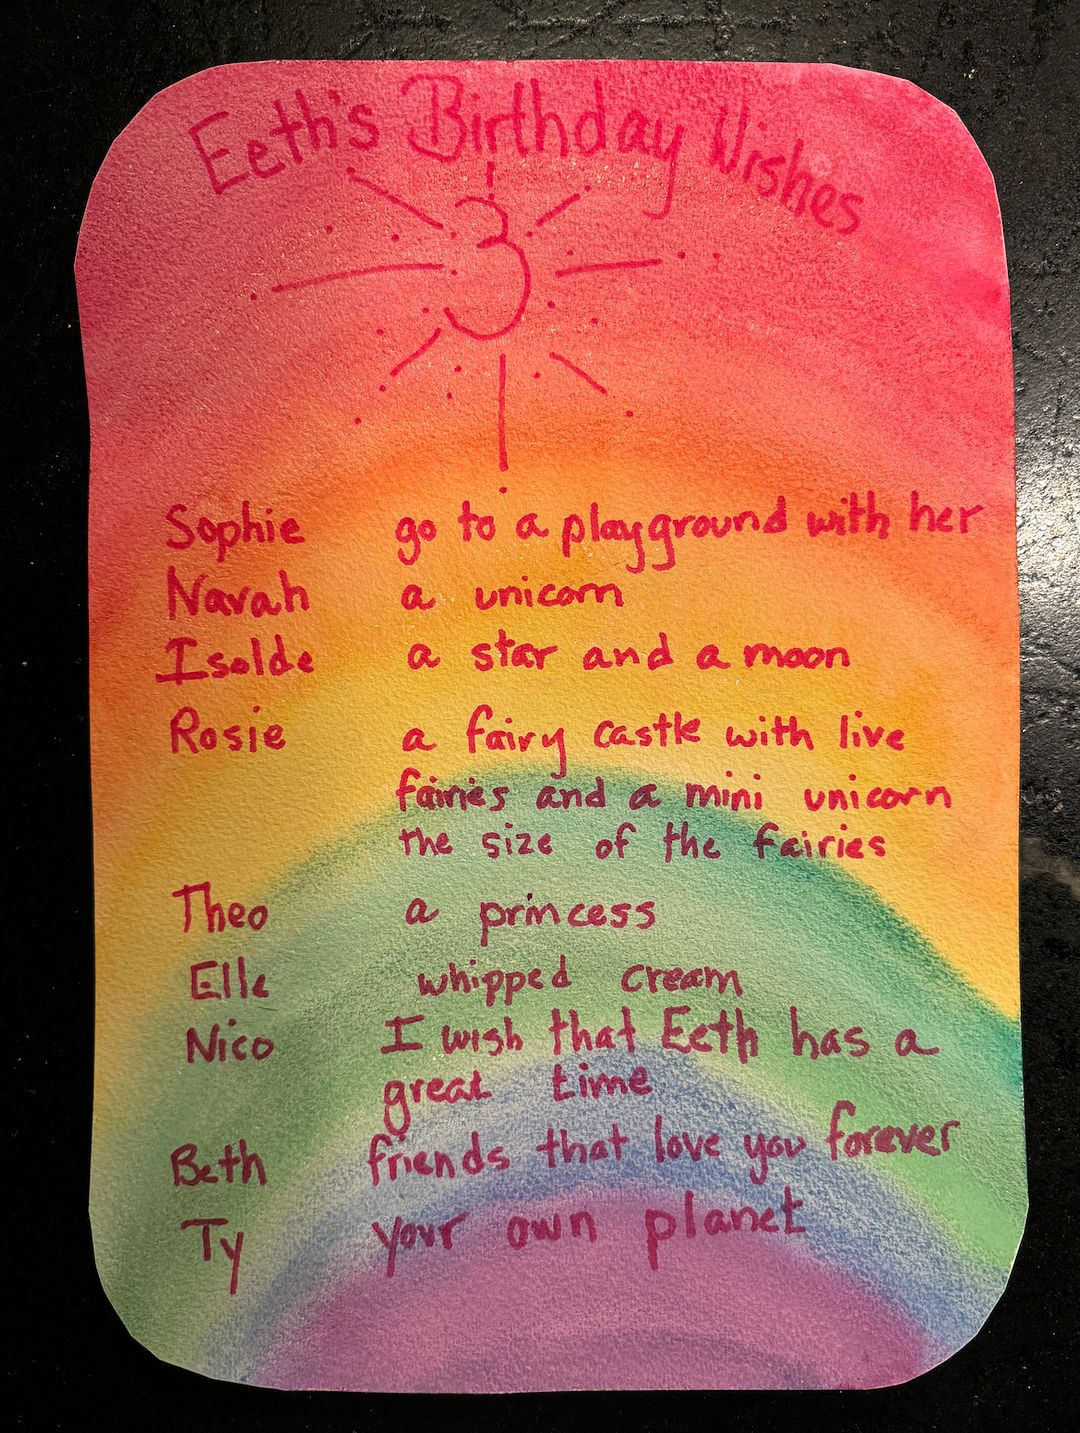 Eeth's Birthday Wishes
3
Sophie go to a playground with her
Navah a unicorn
Isolde a star and a moon
Rosie a fairy castle with live
fairies and a mini unicorn
the size of the fairies
Theo a princess
Elle whipped cream
Nico I wish that Eeth has a
great time
Beth friends that love you forever
Ty your own planet